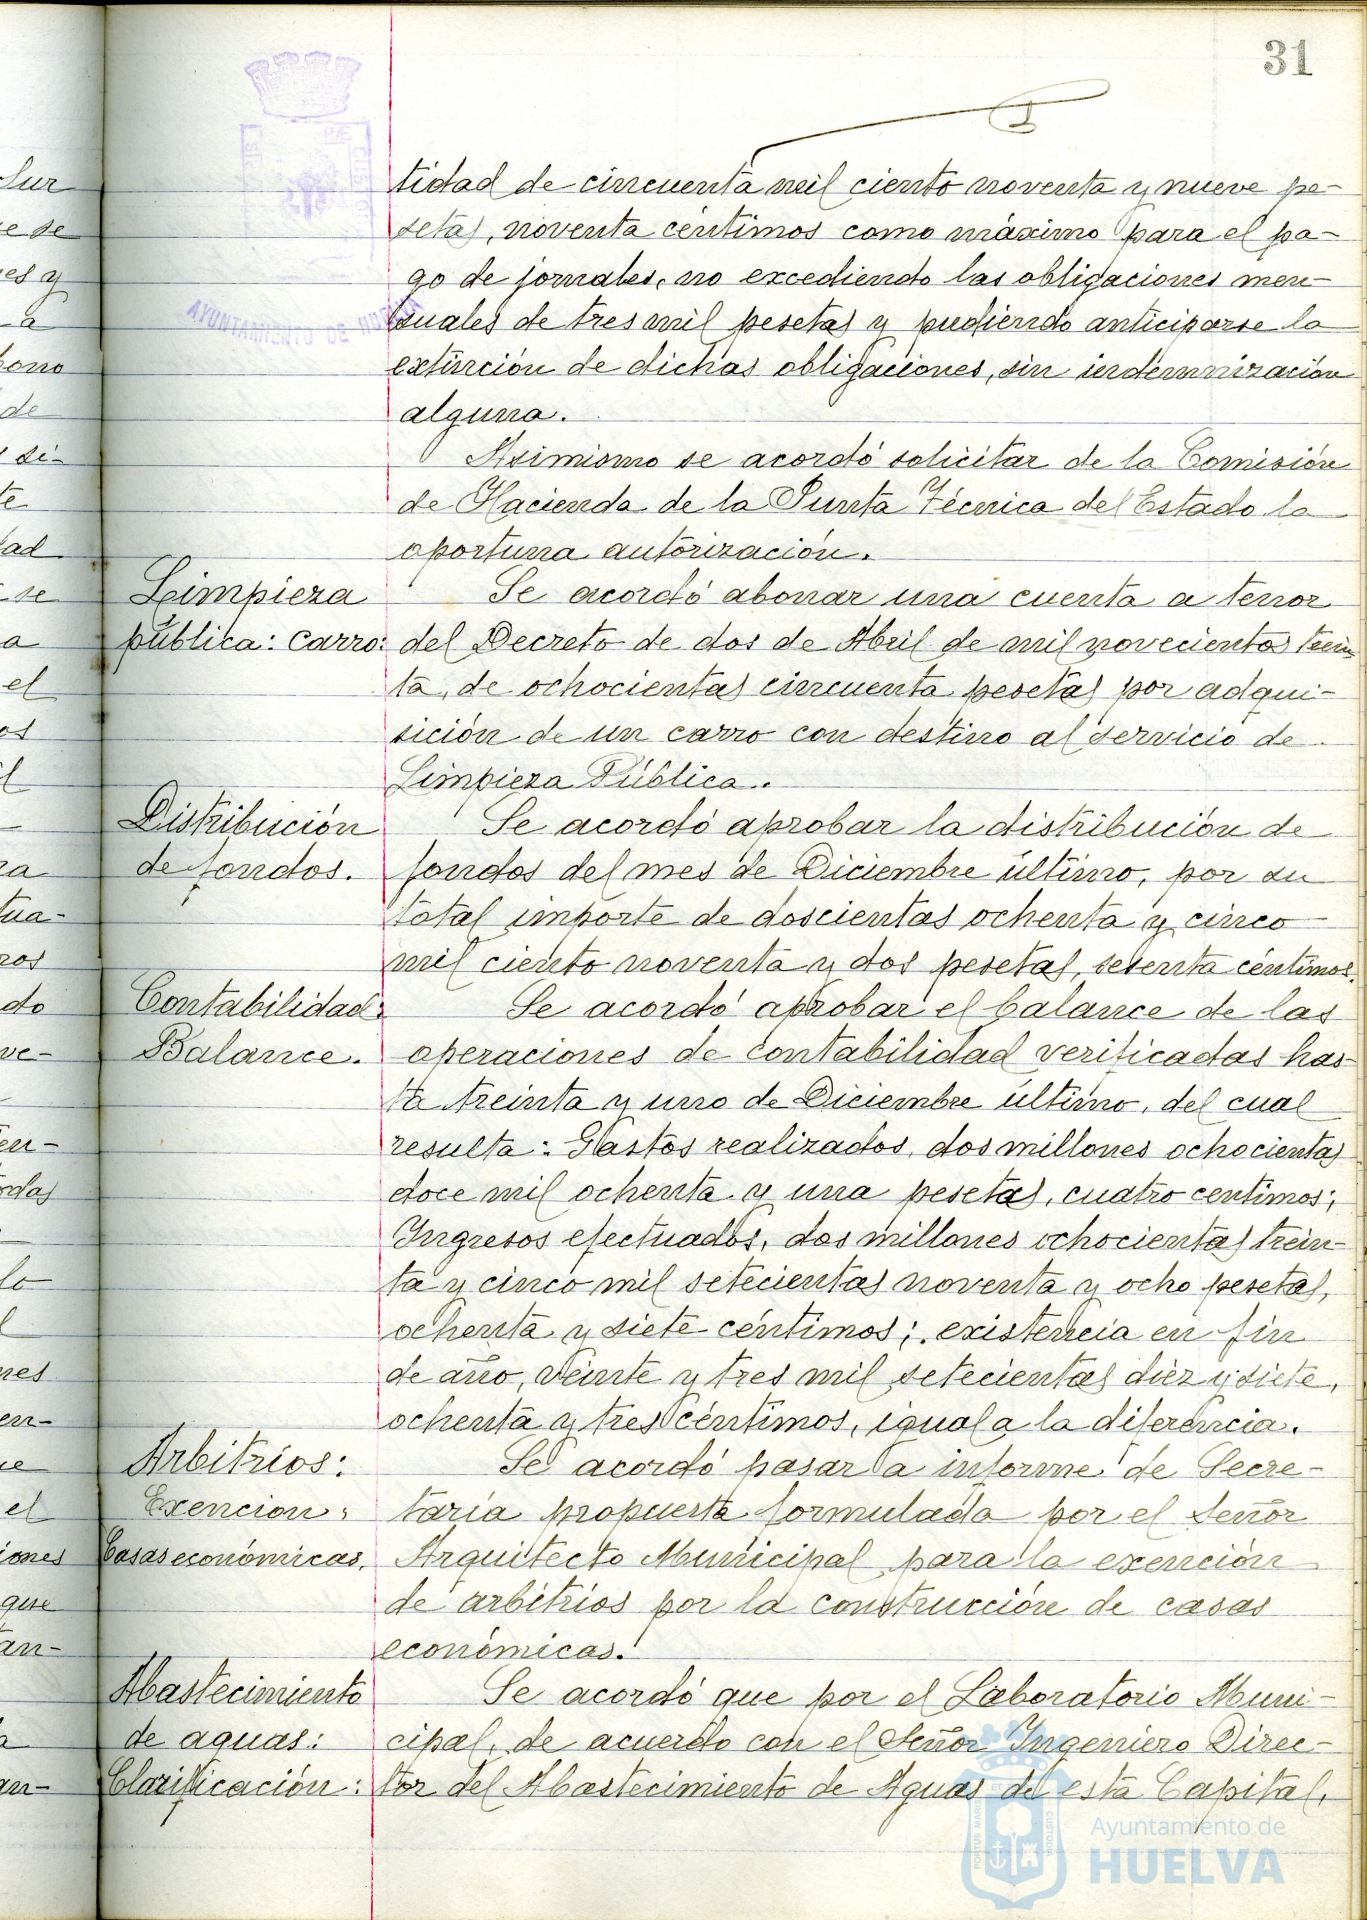 31
tidad de cincuenta mil ciento noventa y nueve pe-
setas, noventa céntimos como máximo para el pa-
go de jornales, no excediendo las obligaciones men-
AYUNTAMIENTO DE HUELVA
suales de tres mil pesetas y pudiendo anticiparse la
extinción de dichas obligaciones, sin indemnización
alguna.
Asimismo se acordó solicitar de la Comisión
de Hacienda de la Junta Técnica del Estado la
oportuna autorización.
Limpieza
pública: carro:
Se acordó abonar una cuenta a tenor
del Decreto de dos de Abril de mil novecientos trein-
ta, de ochocientas cincuenta pesetas por adqui-
sición de un carro con destino al servicio de
Limpieza Pública.
Distribución
de fondos.
Se acordó aprobar la distribución de
fondos del mes de Diciembre último, por su
total importe de doscientas ochenta y cinco
mil ciento noventa y dos pesetas, sesenta céntimos.
Contabilidad:
Balance.
Se acordó aprobar el balance de las
operaciones de contabilidad verificadas has-
ta treinta y uno de Diciembre último, del cual
resulta: Gastos realizados, dos millones ochocientas
doce mil ochenta y una pesetas, cuatro centimos;
Ingresos efectuados, dos millones ochocientas trein-
ta y cinco mil setecientas noventa y ocho pesetas,
ochenta y siete céntimos; existencia en fin
de año, veinte y tres mil setecientas diez y siete,
ochenta y tres céntimos, igual a la diferencia.
Arbitrios:
Exencion:
Casas económicas.
Se acordó pasar a informe de Secre-
taría propuesta formulada por el Señor
Arquitecto Municipal para la exención
de arbitrios por la construcción de casas
económicas.
Abastecimiento
de aguas:
Clarificación:
Se acordó que por el Laboratorio Muni-
cipal, de acuerdo con el Señor Ingeniero Direc-
tor del Abastecimiento de Aguas de esta Capital,
Ayuntamiento de
HUELVA